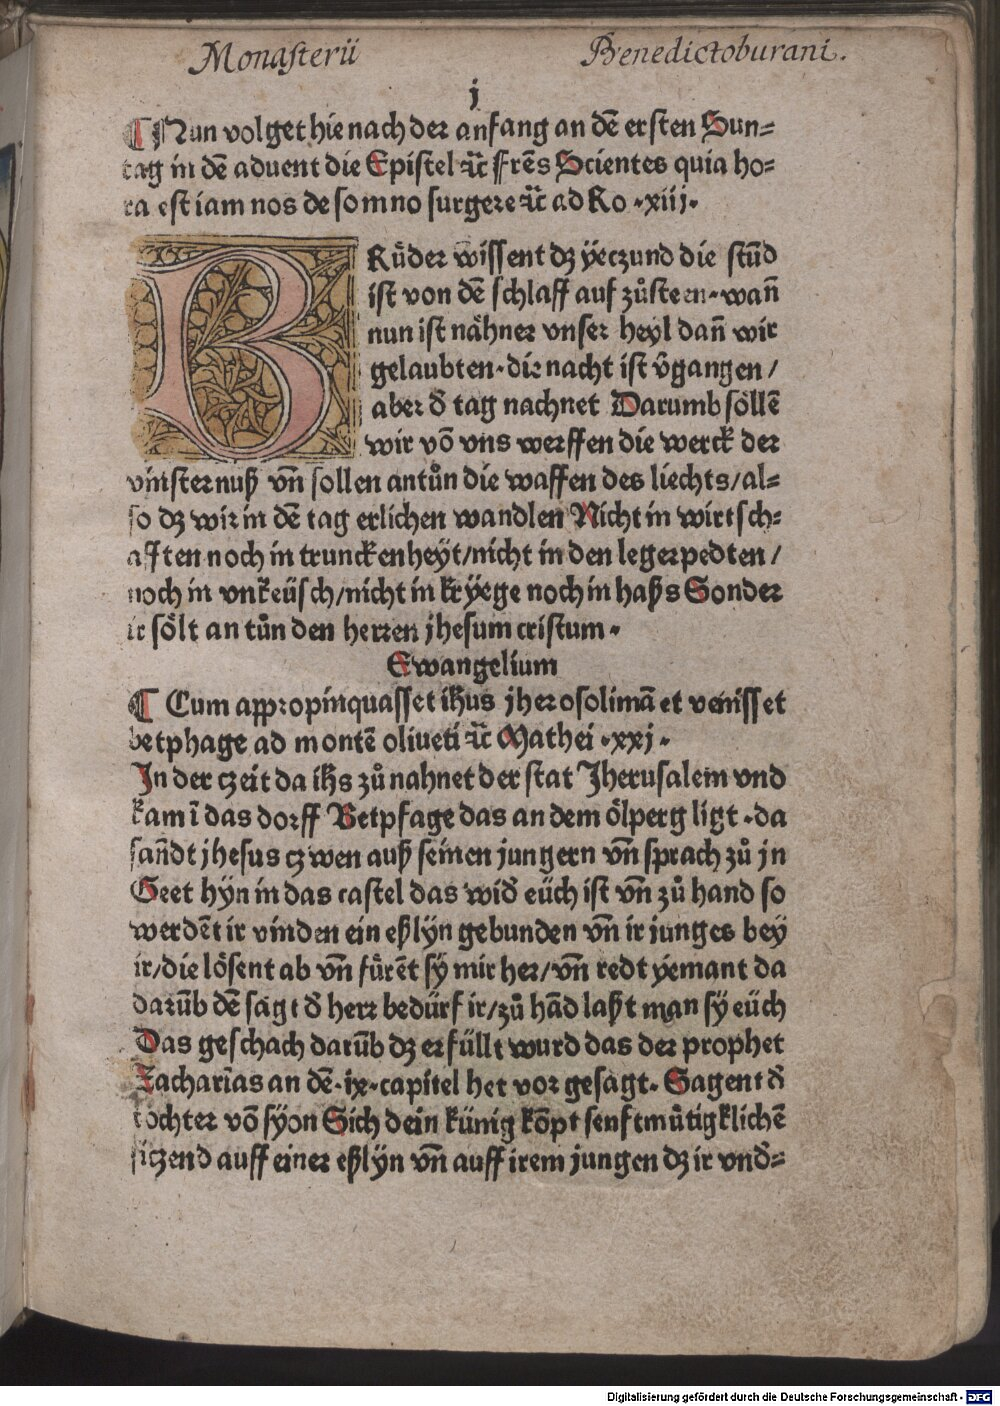 Monasterii Benedictoburani.
j
¶ Nun volget hie nach der anfang an dē ersten Sun=
tag in dē aduent die Epistel ⁊c̈ ffrēs Scientes quia ho=
ra est iam nos de somno surgere ⁊c̈ ad Ro .xiij.
BRůder wissent dz yeczund die stūd
ist von dē schlaff auf zůsteen.wañ
nun ist nåhner vnser heyl dañ wir
gelaubten.die nacht ist v̄gangen/
aber d̄ tag nachnet Darumb söllē
wir vō vns werffen die werck der
vinsternuß vn̄ sollen antůn die waffen des liechts/al=
so dz wir in dē tag erlichen wandlen Nicht in wirtsch=
afften noch in trunckenheÿt/nicht in den legerpedten/
noch in vnkeüsch/nicht in krÿege noch in haßs Sonder
ir sölt an tůn den herren jhesum cristum.
Ewangelium
¶ Cum appropinquasset ih̄us jherosolimā et venisset
betphage ad montē oliueti ⁊c̈ Mathei .xxj.
In der czeit da ih̄s zů nahnet der stat Jherusalem vnd
kam ī das dorff Betpfage das an dem ölperg ligt.da
san̄dt jhesus czwen auß seinen jungern vn̄ sprach zů jn
Geet hÿn in das castel das wid̄ eüch ist vn̄ zů hand so
werdēt ir vinden ein eßlÿn gebunden vn̄ ir junges bey
ir/die lösent ab vn̄ fůrēt sÿ mir her/vn̄ redt ÿemant da
darūb dē sagt d̄ herr bedürf ir/zů hād laßt man sÿ eüch
Das geschach darūb dz erfüllt wurd das der prophet
Zacharias an dē.ix.capitel het vor gesagt. Sagent d̄
tochter vō sÿon Sich dein künig kōpt senftmůtigklichē
siczend auff einer eßlÿn vn̄ auff irem jungen dz ir vnd̄=
Digitalisierung gefördert durch die Deutsche Forschungsgemeinschaft - DFG